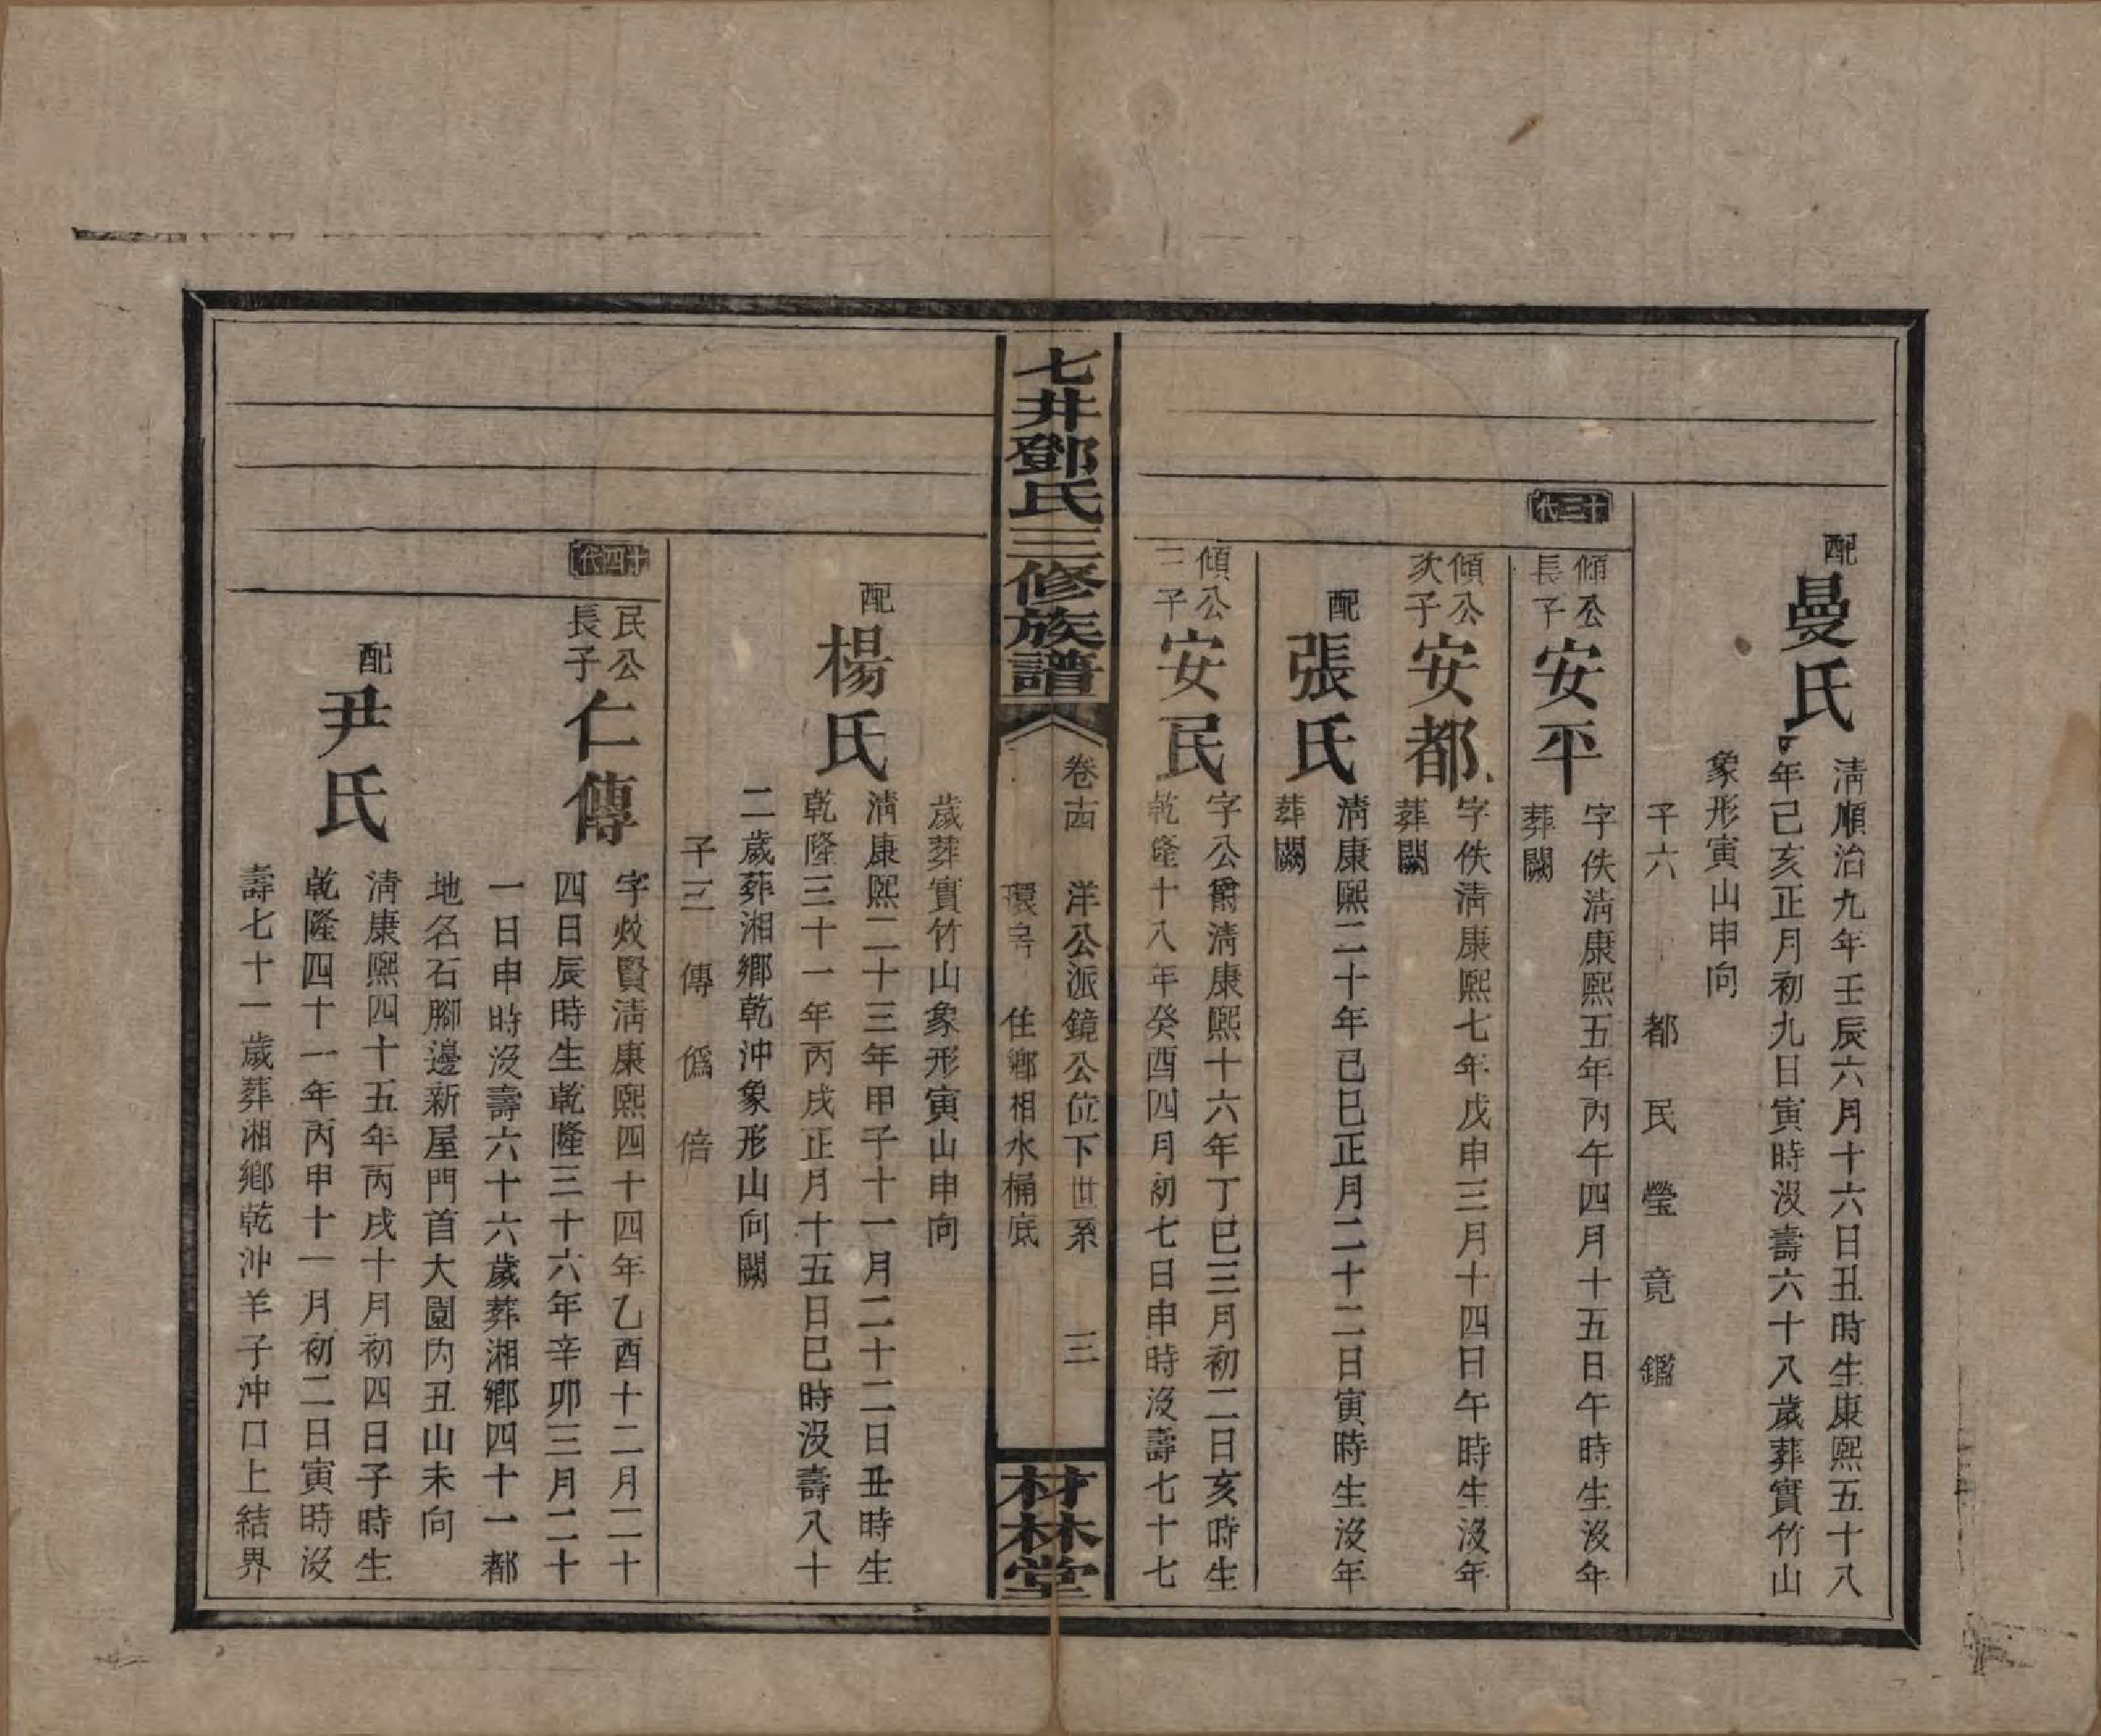 配
曼氏
清順治九年壬辰六月十六日丑時生康熙五十八
年己亥正月初九日寅時没壽六十八歲葬實竹山
象形寅山申向
子六 都 民 瑩 竟 鑑
十三代
傾公
長子
安平
字佚清康熙五年丙午四月十五日午時生没年
葬闕
傾公
次子
安都
字佚清康熙七年戊申三月十四日午時生没年
葬闕
配
張氏
清康熙二十年己巳正月二十二日寅時生没年
葬闕
傾公
三子
安民
字公爵清康熙十六年丁巳三月初二日亥時生
乾隆十八年癸酉四月初七日申時没壽七十七
七井鄧氏三修族譜
卷十四 洋公派鏡公位下世系 三
環房 住鄉相水桶底
材林堂
歲葬實竹山象形寅山申向
配
楊氏
清康熙二十三年甲子十一月二十二日丑時生
乾隆三十一年丙戌正月十五日巳時没壽八十
二歲葬湘鄉乾沖象形山向闕
子三 傳 僞 倍
十四代
民公
長子
仁傳
字效賢清康熙四十四年乙酉十二月二十
四日辰時生乾隆三十六年辛卯三月二十
一日申時没壽六十六歲葬湘鄉四十一都
地名石腳邊新屋門首大園内丑山未向
配
尹氏
清康熙四十五年丙戌十月初四日子時生
乾隆四十一年丙申十一月初二日寅時没
壽七十一歲葬湘鄉乾沖羊子沖口上結界